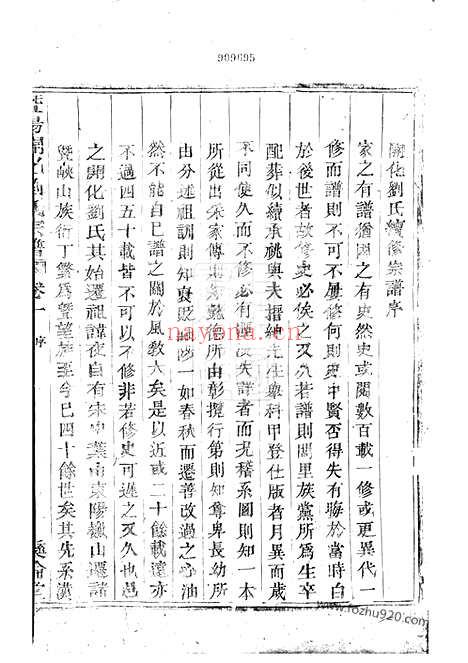 909695
開化劉氏續修宗譜序
家之有譜猶國之有史然史或閱數百載一修或更異代一
修而譜則不可不屢修何則史中賢否得失有晦於當時白
於後世者故修史必俟之又久若譜則閭里族黨所爲生卒
配葬似續承祧與夫搢紳先生與科甲登仕版者月異而歲
不同使久而不修必有闕決失詳者而尤稽系圖則知一本
所從出采家傳則知懿德所由彰攬行第則知尊卑長幼所
由分述祖訓則知褒貶 一如春秋而遷善改過之心油
然不能自已譜之關於風教大矣是以近或二十餘載遠亦
不過四五十載皆不可以不修非若修史可遲之又久也邑
之開化劉氏其始遷祖諱 自有宋中葉由東陽 山遷諸
暨 山族衍丁繁爲暨望族至今已四十餘世矣其先系漢
宗譜 卷一
序
nayona.cn
www.fozhu920.com